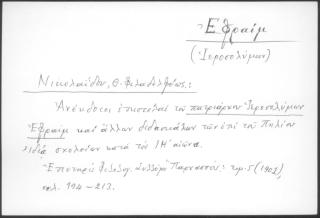 Ἐφραίμ
(Ἱεροσολύμων)
Νικολαΐδου, Θ. Φιλαδελφέως:
Ἀνέκδοτοι ἐπιστολαί τοῦ πατριάρχου Ἱεροσολύμων
Ἐφραίμ καί ἄλλων διδασκάλων τῶν ἐπί τοῦ Πηλίου
ἰδίᾳ σχολείων κατά τόν ΙΗ' αἰῶνα.
Ἐπετηρίς Φιλολογ. Συλλόγου Παρνασσός: τόμ. 5 (1901),
σελ. 194-213.